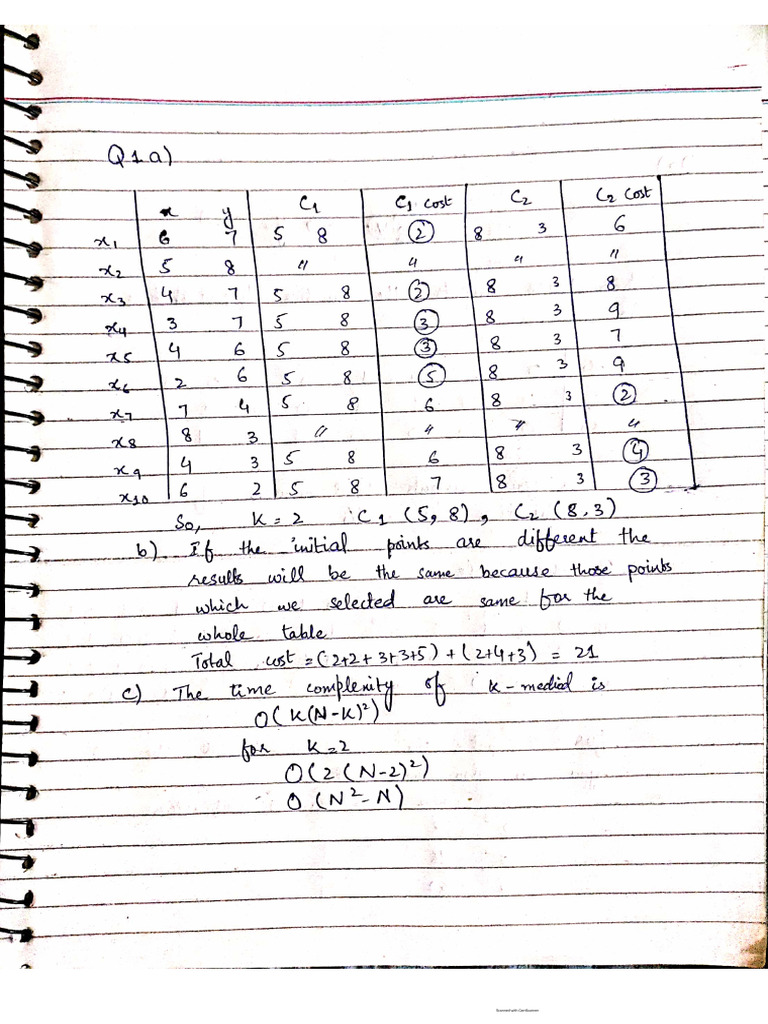 Q1a)
x y C1 C1 cost C2 C2 cost
x1 6 7 5 8 2 8 3 6
x2 5 8 " " " "
x3 4 7 5 8 2 8 3 8
x4 3 7 5 8 3 8 3 9
x5 4 6 5 8 3 8 3 7
x6 2 6 5 8 5 8 3 9
x7 7 4 5 8 6 8 3 2
x8 8 3 " " " "
x9 4 3 5 8 6 8 3 4
x10 6 2 5 8 7 8 3 3
So, K = 2 C1 (5, 8), C2 (8.3)
b) If the initial points are different the
results will be the same because those points
which we selected are same for the
whole table
Total cost = (2+2+3+3+5) + (2+4+3) = 21
c) The time complexity of K-medied is
O(K(N-K)²)
for K=2
O(2(N-2)²)
O(N²-N)
Scanned with CamScanner